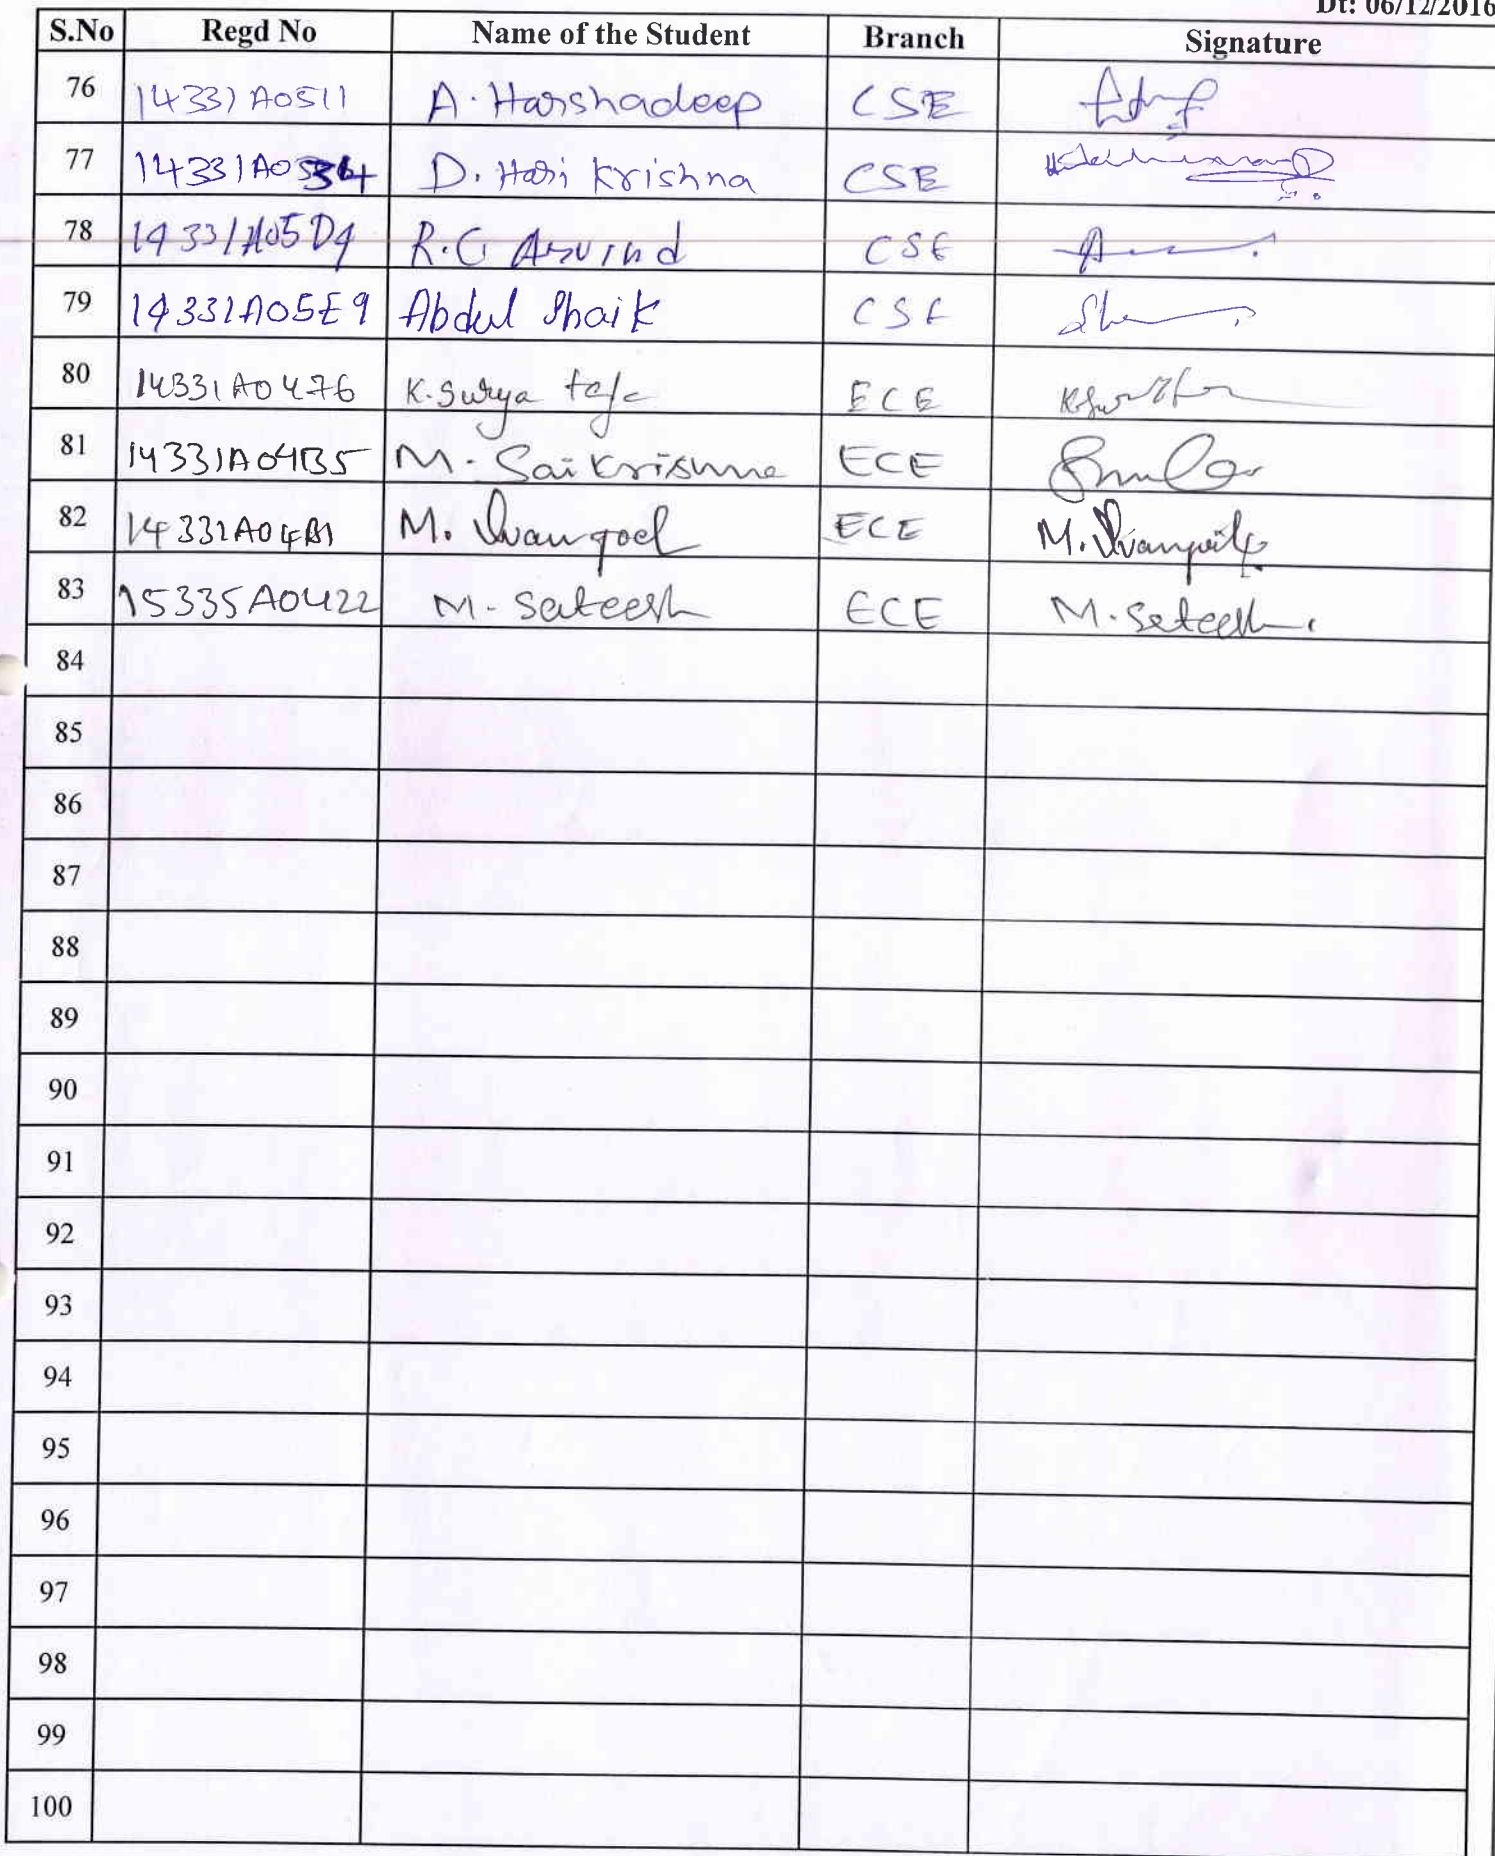 Dt: 06/12/2016
S.No Regd No Name of the Student Branch Signature
76 14331A0511 A. Harshadeep CSE
77 14331A0534 D. Hari Krishna CSE
78 14331A05D4 R.G Arvind CSE
79 14331A05E9 Abdul Shaik CSE
80 14331A0476 K. Surya teja ECE
81 14331A04B5 M. Sai Krishna ECE
82 M. ECE M.
83 15335A0422 M. Sateesh ECE M. Sateesh
84
85
86
87
88
89
90
91
92
93
94
95
96
97
98
99
100